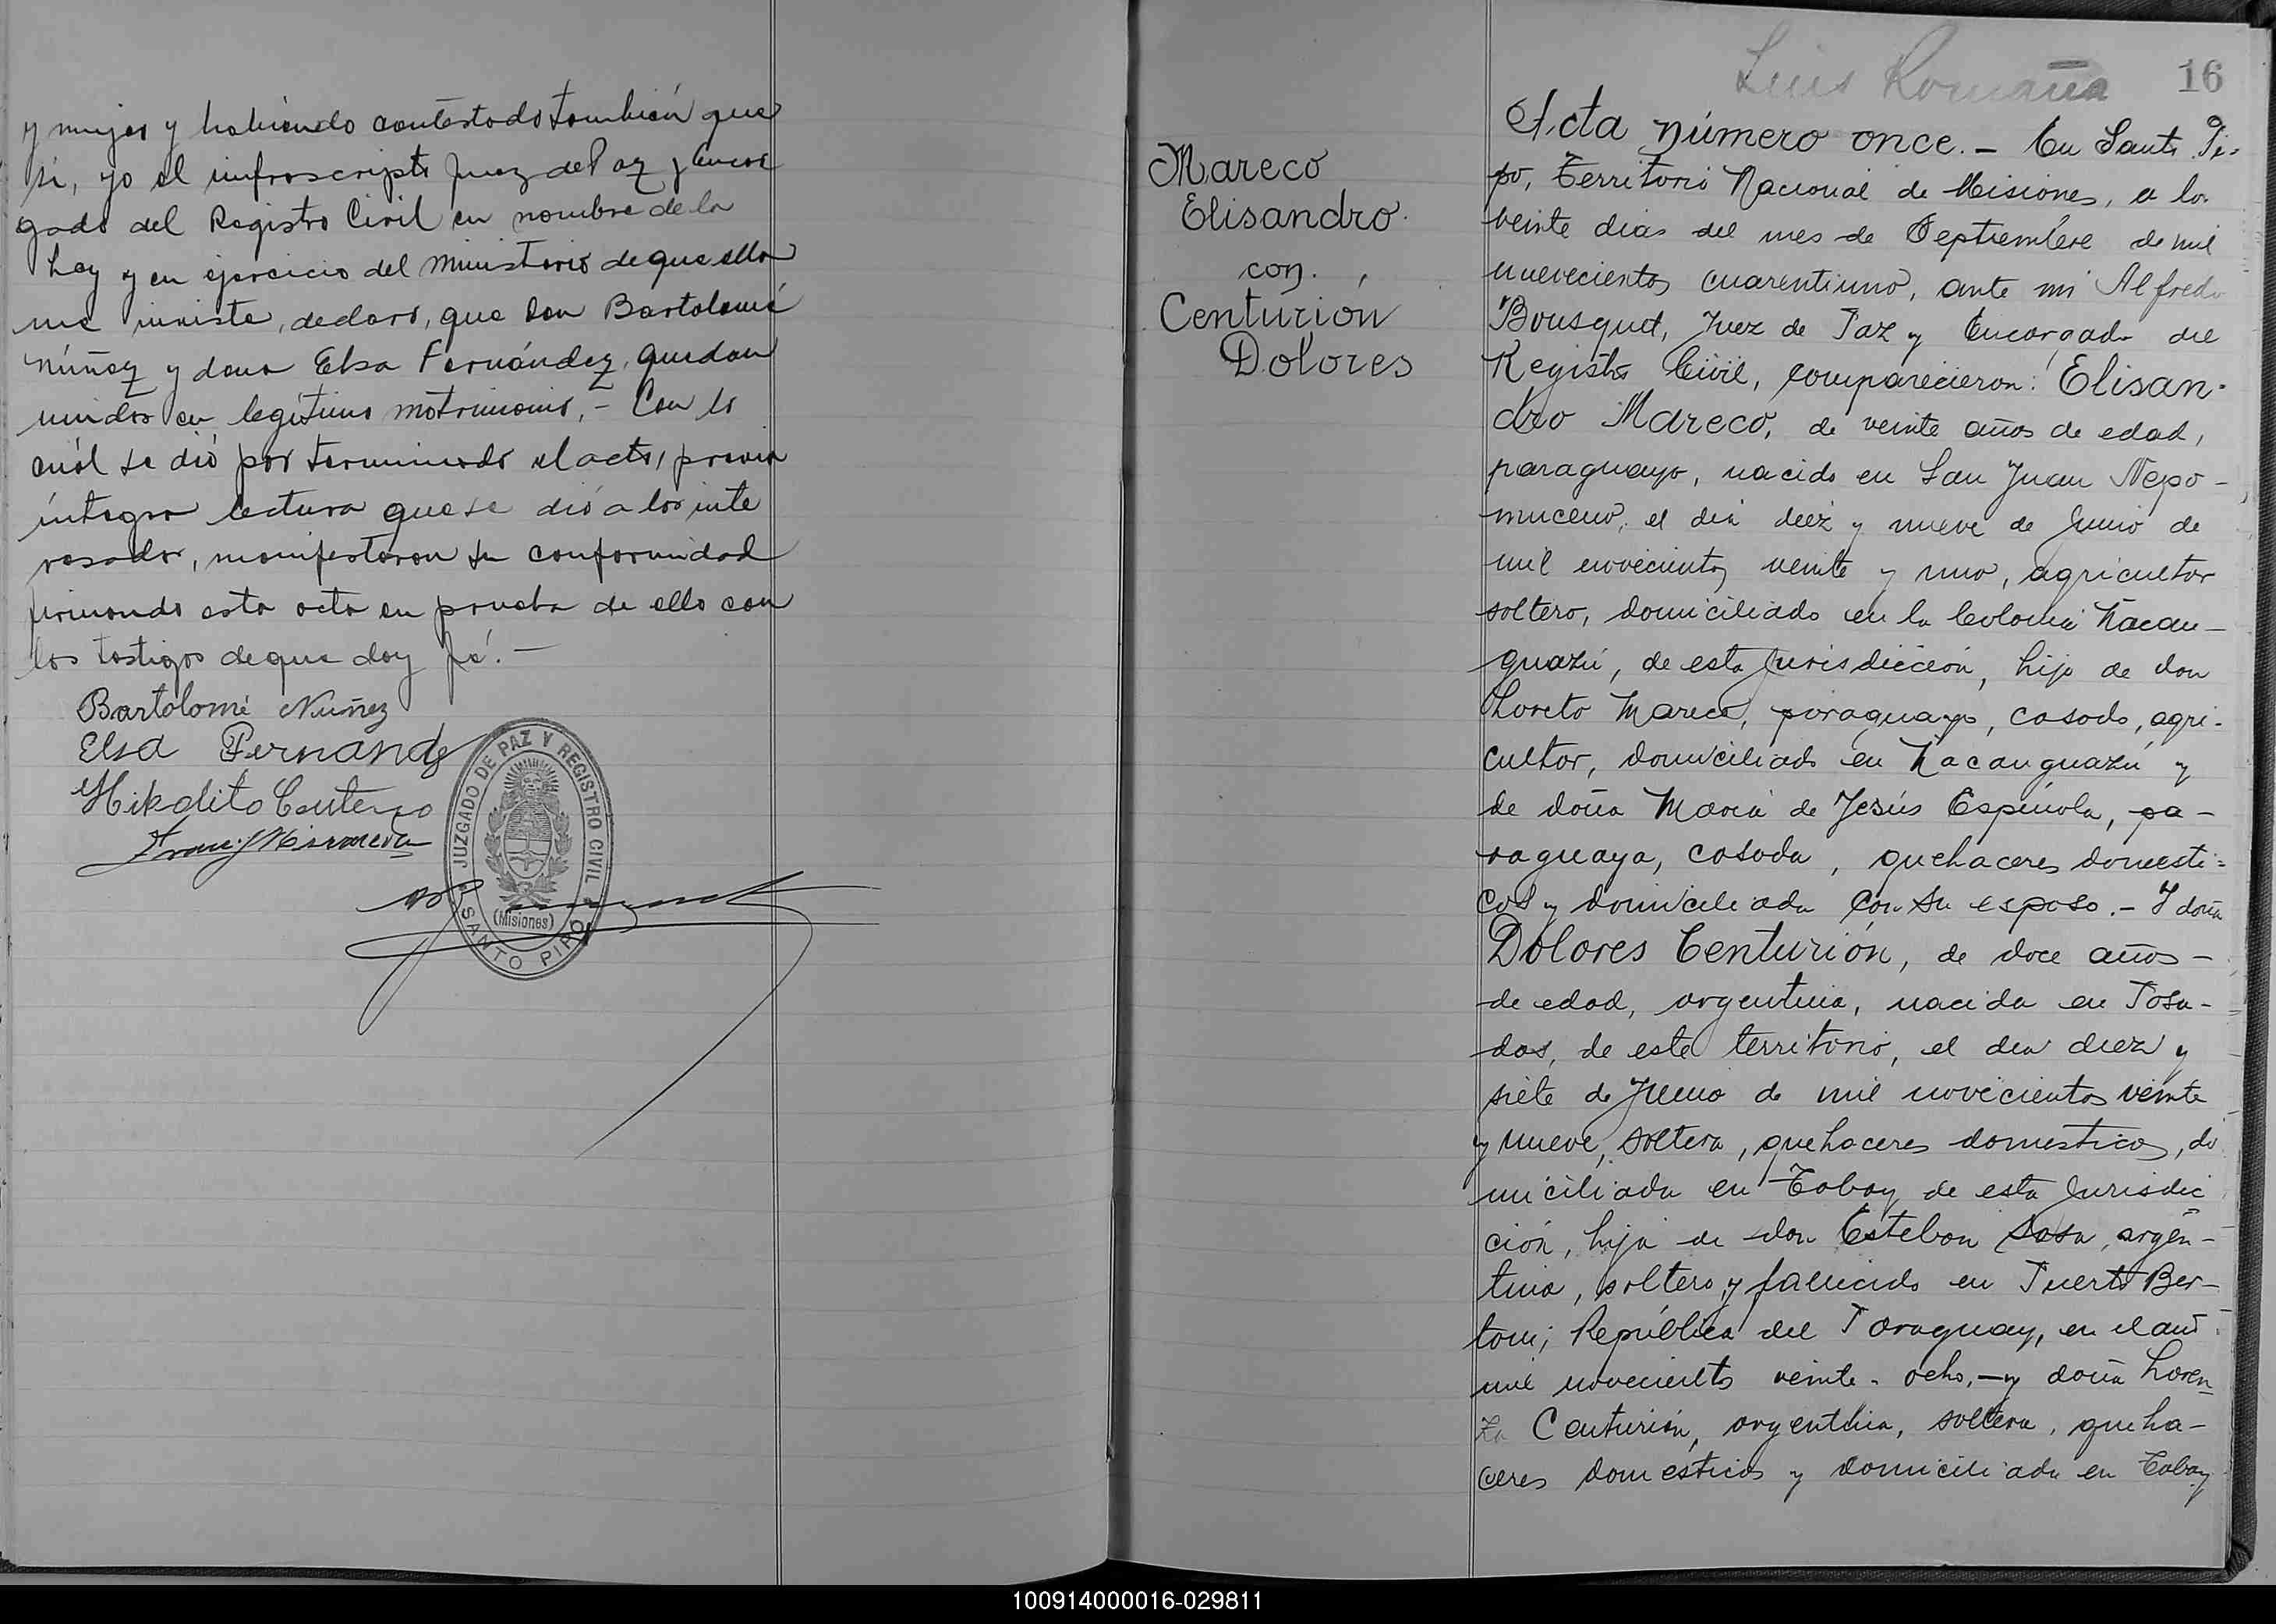 y mujer y habiendo contestado también que
si, yo el infrascripto Juez de Paz y Encar
gado del Registro Civil en nombre de la
Ley y en ejercicio del ministerio de que ella
me inviste, declaro, que Don Bartolomé
Núñez y dona Elsa Fernández, quedan
unidos en legítimo matrimonio,- Con lo
cuál se dió por terminado el acto, previa
íntegra lectura que se dió a los inte
resados, manifestaron su conformidad
firmando esta acta en prueba de ello con
los testigos de que doy fé.-
Bartolomé Nuñez
Elsa Fernandz
Centeno
JUZGADO DE PAZ Y REGISTRO CIVIL
(Misiones)
SANTO PIPÓ
Luis Romaña
16
Mareco
Elisandro.
con.
Centurión
Dolores
Acta número once.- En Santo Pi-
pó, Territorio Nacional de Misiones, a los
veinte dias del mes de Septiembre de mil
nuevecientos cuarentiuno, ante mi Alfredo
Bousquet, Juez de Paz y Encargado del
Registro Civil, comparecieron: Elisan-
dro Mareco, de veinte años de edad,
paraguayo, nacido en San Juan Nepo-
muceno, el dia diez y nueve de Junio de
mil novecientos veinte y uno, agricultor
soltero, domiciliado en la Colonia Ñacan-
guazú, de esta Jurisdicción, hijo de don
Loreto Mareco, paraguayo, casado, agri-
cultor, domiciliado en Ñacanguazú y
de doña Maria de Jesús Espínola, pa-
raguaya, casada, quehaceres domesti-
cos y domiciliada con su esposo.- Y doña
Dolores Centurión, de doce años-
de edad, argentina, nacida en Posa-
das, de este territorio, el dia diez y
siete de Junio de mil novecientos veinte
y nueve, soltera, quehaceres domesticos, do
miciliada en Tabay de esta Jurisdic
ción, hija de don Esteban Sosa, argen-
tino, soltero, y fallecido en Puerto Ber-
toni; República del Paraguay, en el año
mil novecients veinte-ocho,-y doña Loren
za Centurión, argentina, soltera, queha-
ceres domesticos y domiciliada en Tabay
100914000016-029811